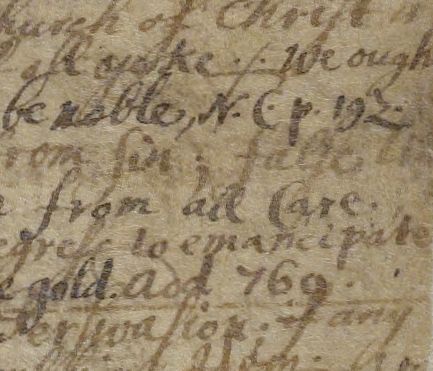 church of Christ is
all yoke. We ough
be noble, N. C. p. 192.
rom sin; false
from all Care.
egrese to emancipate
e gold. Add. 769.
Perswasion; any